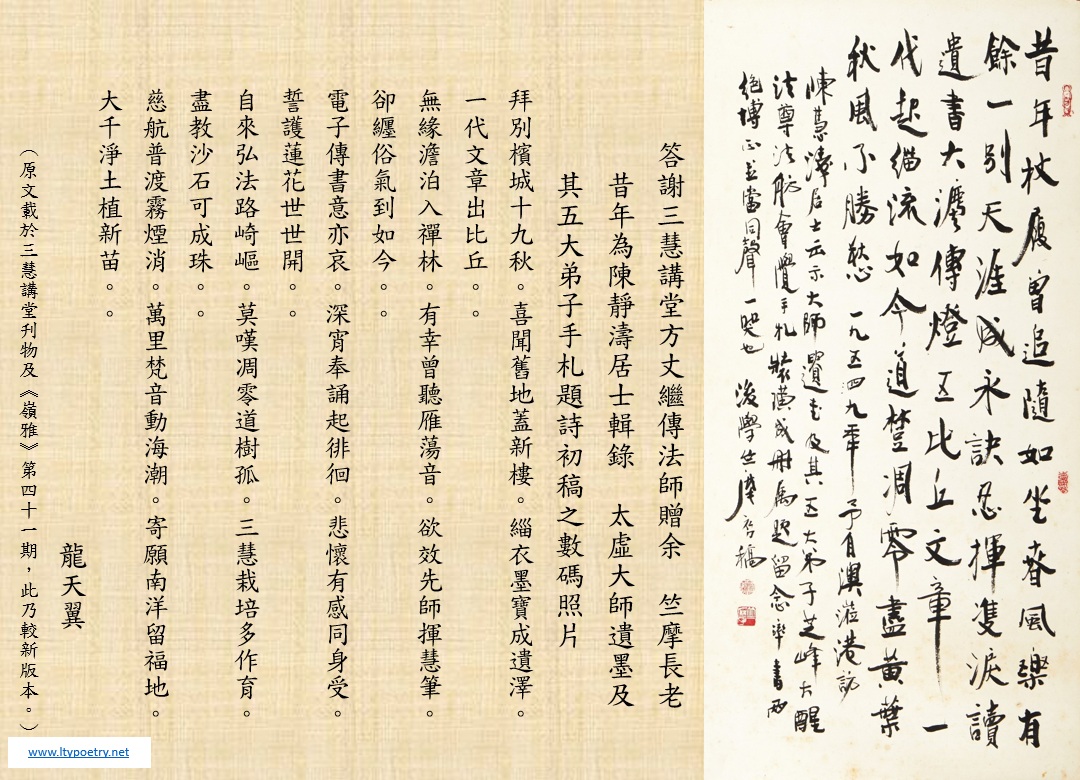 昔年杖履曾追隨如坐春風樂有
餘一別天涯成永訣忍揮雙淚讀
遺書大傳燈五比丘文章一
代起緇流如今道樹凋零盡黃葉
秋風不勝愁 一九五四九年 予自澳涖港訪
陳靜濤居士出示大師遺墨及其五大弟子芝峰大醒
法尊法舫會覺手札裝潢成冊屬題留念率書兩
絕博正並當同聲一哭也 後學竺摩存稿
答謝三慧講堂方丈繼傳法師贈余 竺摩長老
昔年為陳靜濤居士輯錄 太虛大師遺墨及
其五大弟子手札題詩初稿之數碼照片
拜別檳城十九秋。喜聞舊地蓋新樓。緇衣墨寶成遺澤。
一代文章出比丘。。
無緣澹泊入禪林。有幸曾聽雁蕩音。欲效先師揮慧筆。
卻纏俗氣到如今。。
電子傳書意亦哀。深宵奉誦起徘徊。悲懷有感同身受。
誓護蓮花世世開。。
自來弘法路崎嶇。莫嘆凋零道樹孤。三慧栽培多作育。
盡教沙石可成珠。。
慈航普渡霧煙消。萬里梵音動海潮。寄願南洋留福地。
大千淨土植新苗。。
龍天翼
（原文載於三慧講堂刊物及《嶺雅》第四十一期，此乃較新版本。）
www.ltypoetry.net